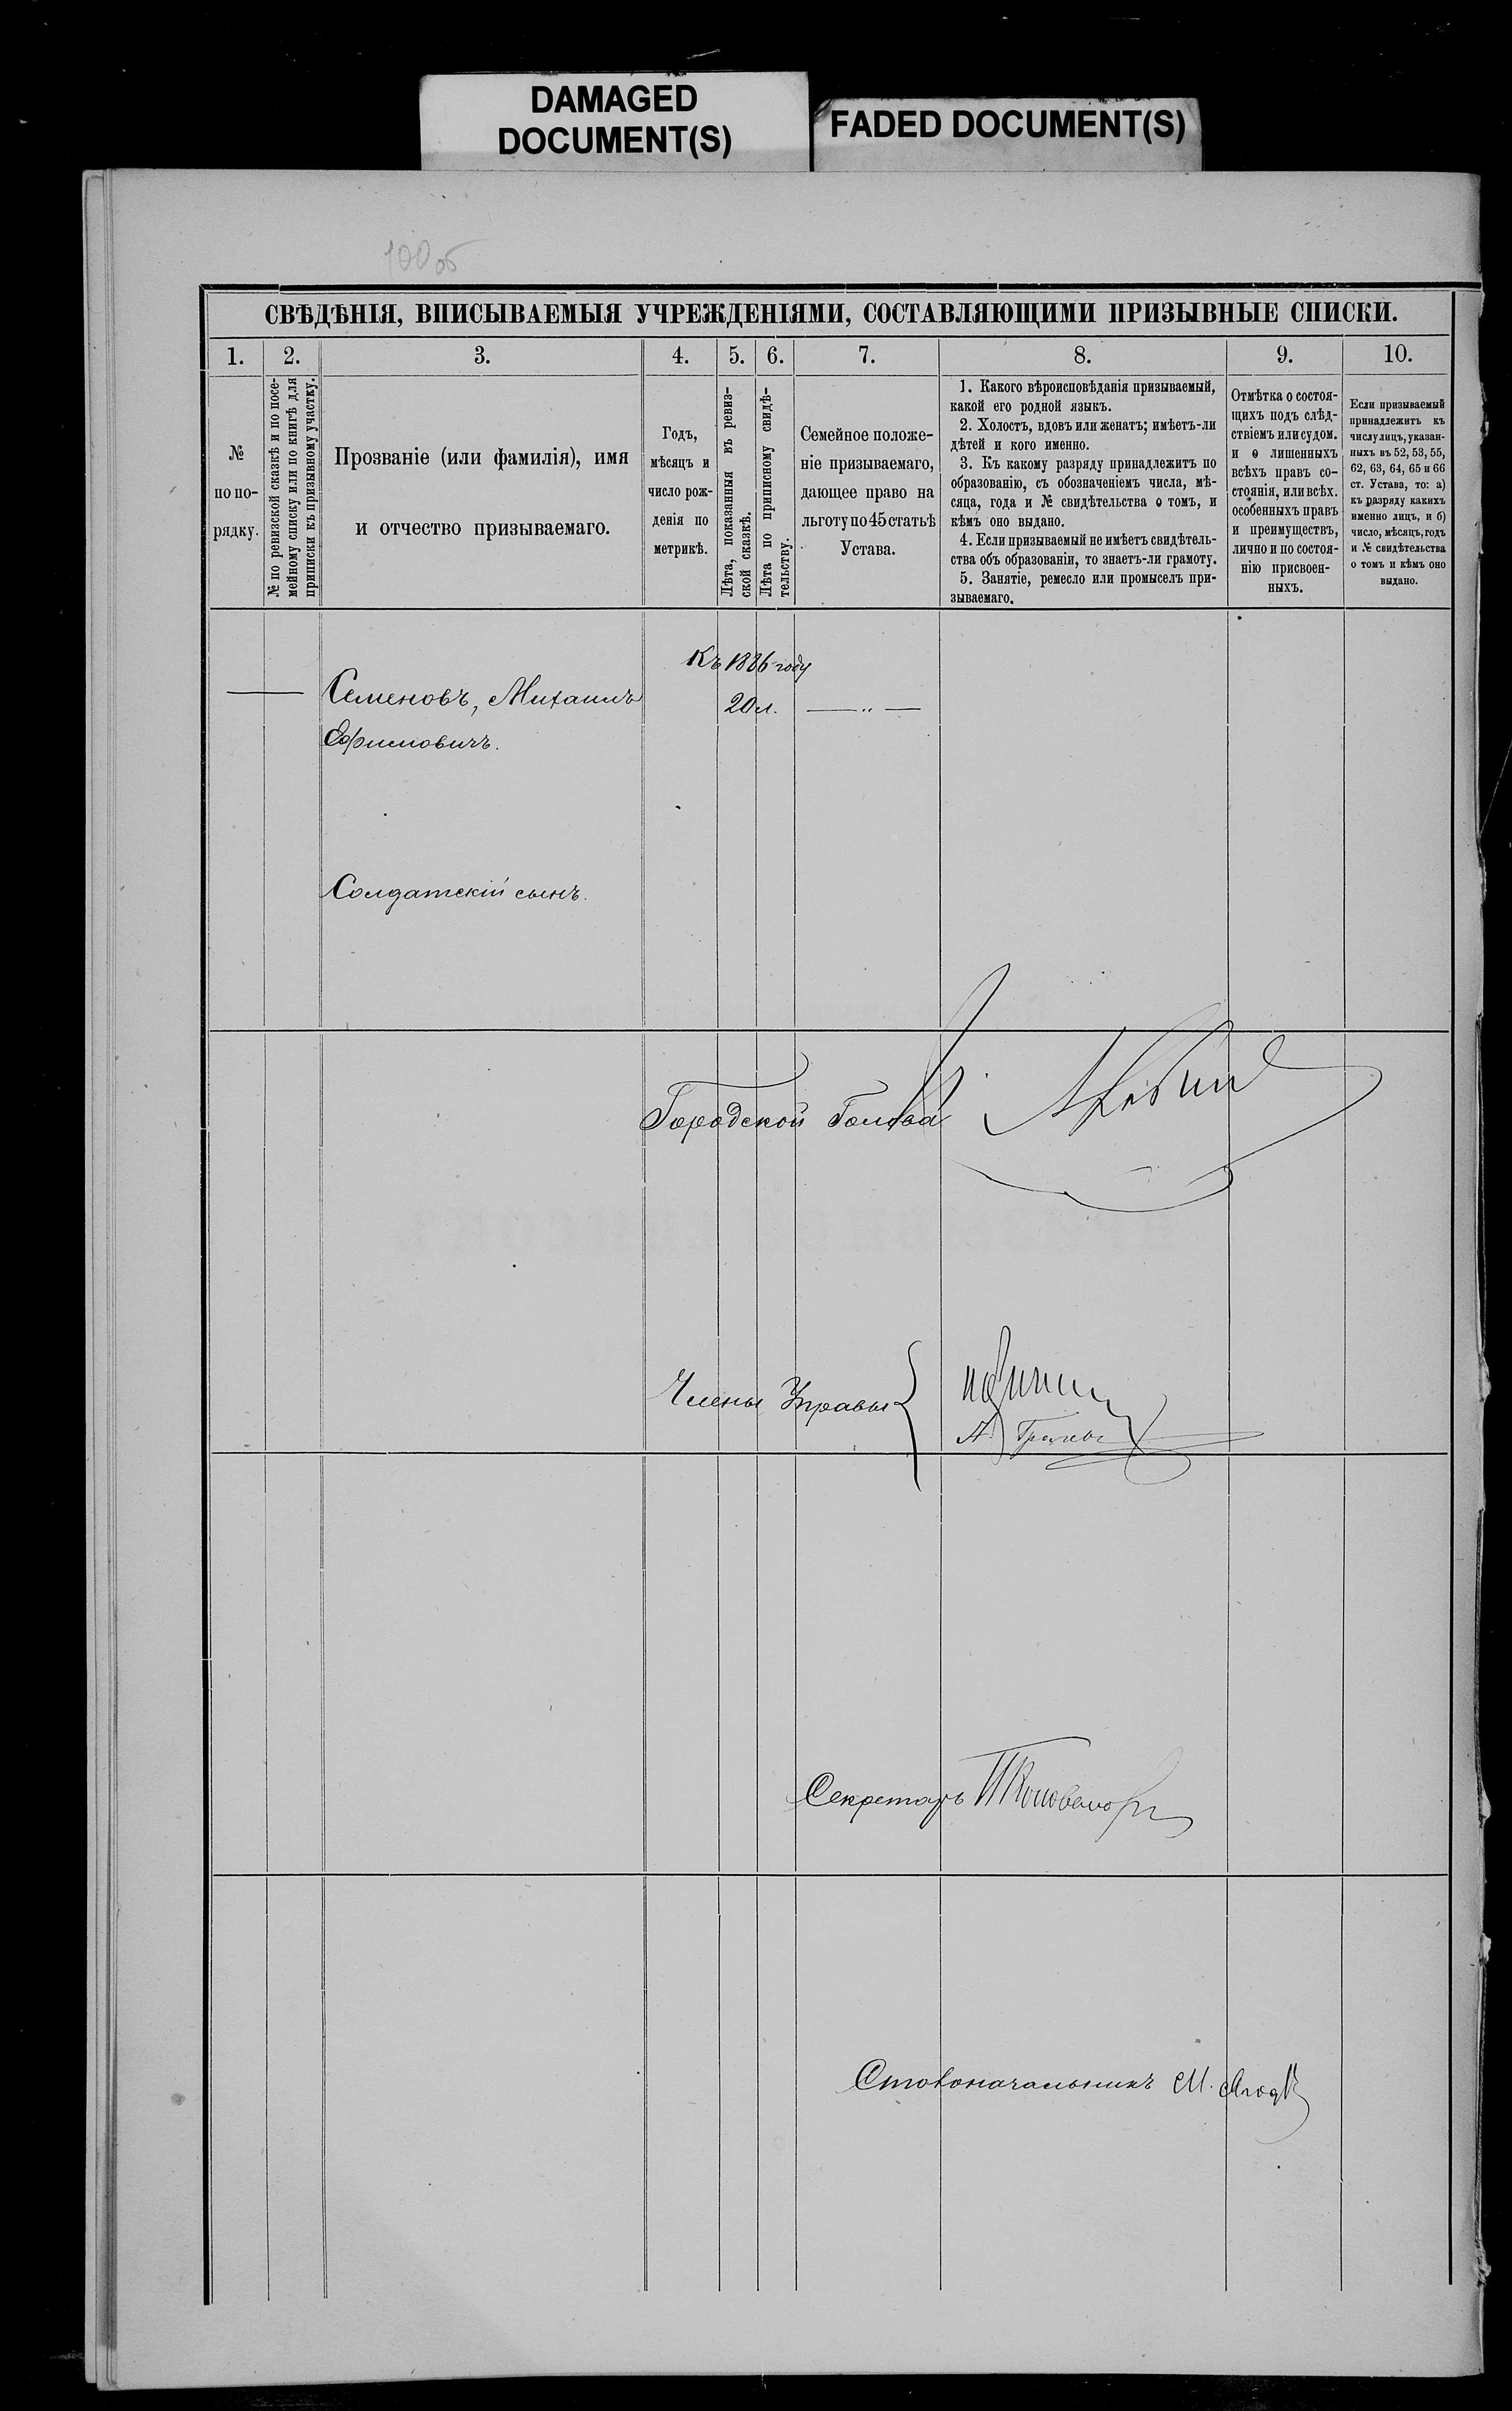 DAMAGED
DOCUMENT(S)
FADED DOCUMENT(S)
100 об
СВѢДѢНІЯ, ВПИСЫВАЕМЫЯ УЧРЕЖДЕНІЯМИ, СОСТАВЛЯЮЩИМИ ПРИЗЫВНЫЕ СПИСКИ.
1. 2. 3. 4. 5. 6. 7. 8. 9. 10.
№
по по-
рядку.
№ по ревизской сказкѣ и по посе-
мейному списку или по книгѣ для
приписки къ призывному участку.
Прозваніе (или фамилія), имя
и отчество призываемаго.
Годъ,
мѣсяцъ и
число рож-
денія по
метрикѣ.
Лѣта, показанныя въ ревиз-
ской сказкѣ.
Лѣта по приписному свидѣ-
тельству.
Семейное положе-
ніе призываемаго,
дающее право на
льготу по 45 статьѣ
Устава.
1. Какого вѣроисповѣданія призываемый,
какой его родной языкъ.
2. Холостъ, вдовъ или женатъ; имѣетъ-ли
дѣтей и кого именно.
3. Къ какому разряду принадлежитъ по
образованію, съ обозначеніемъ числа, мѣ-
сяца, года и № свидѣтельства о томъ, и
кѣмъ оно выдано.
4. Если призываемый не имѣетъ свидѣтель-
ства объ образованіи, то знаетъ-ли грамоту.
5. Занятіе, ремесло или промыселъ при-
зываемаго.
Отмѣтка о состоя-
щихъ подъ слѣд-
ствіемъ или судом.
и о лишенныхъ
всѣхъ правъ со-
стоянія, или всѣх.
особенныхъ правъ
и преимуществъ,
лично и по состоя-
нію присвоен-
ныхъ.
Если призываемый
принадлежитъ къ
числу лицъ, указан-
ныхъ въ 52, 53, 55,
62, 63, 64, 65 и 66
ст. Устава, то: а)
къ разряду какихъ
именно лицъ, и б)
число, мѣсяцъ, годъ
и № свидѣтельства
о томъ и кѣмъ оно
выдано.
Къ 1886 году
Семеновъ, Михаилъ 20 л. — „ —
Ефимовичъ.
Солдатскій сынъ.
Городской Голова
Члены Управы
А.
Секретарь
Столоначальникъ М.